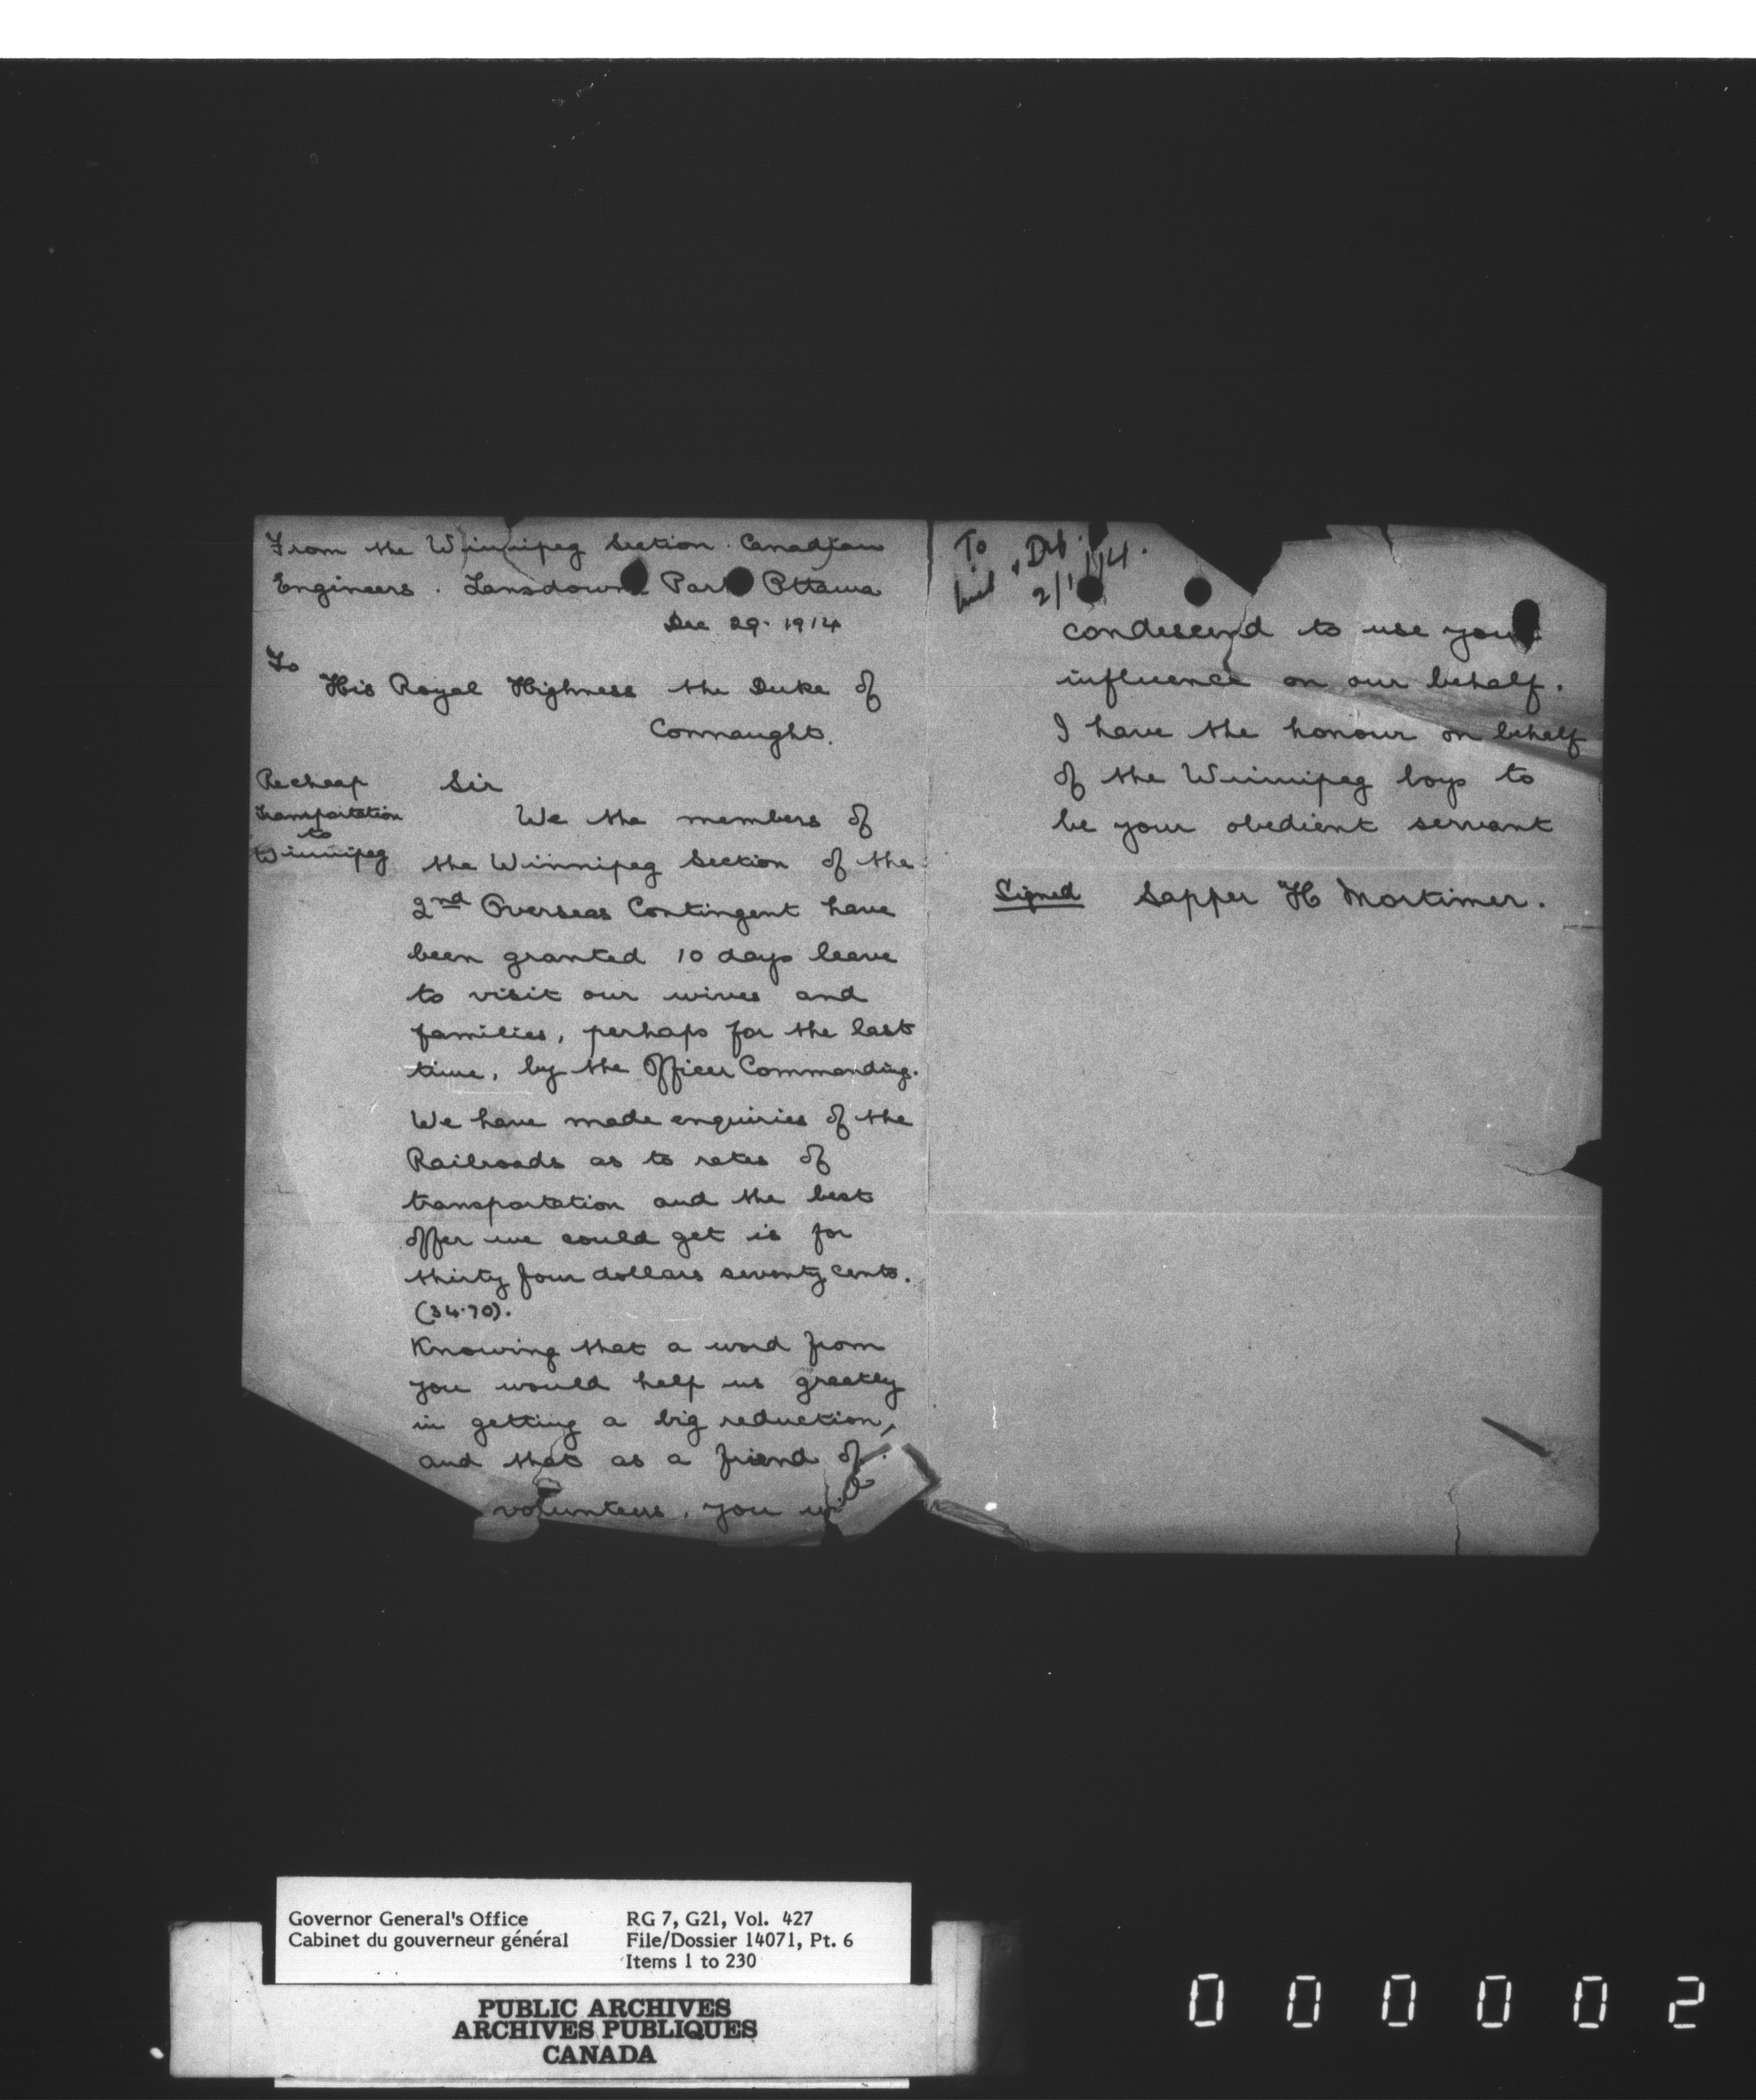 From the Winnipeg Section. Canadian
Engineers. Lansdowne Park Ottawa
Dec 29. 1914
To
His Royal Highness the Duke of
Connaught.
Re cheap
Transportation
to
Winnipeg
Sir
We the members of
the Winnipeg Section of the
2nd Overseas Contingent have
been granted 10 days leave
to visit our wives and
families, perhaps for the last
time, by the Officer Commanding.
We have made enquiries of the
Railroads as to rates of
transportation and the best
offer we could get is for
thirty four dollars seventy cents.
(34.70).
Knowing that a word from
you would help us greatly
in getting a big reduction,
and that as a friend of
volunteers, you will
To
2/1/14.
condescend to use your
influence on our behalf.
I have the honour on behalf
of the Winnipeg boys to
be your obedient servant
Signed Sapper H Mortimer.
Governor General's Office
Cabinet du gouverneur général
RG 7, G21, Vol. 427
File/Dossier 14071, Pt. 6
Items 1 to 230
PUBLIC ARCHIVES
ARCHIVES PUBLIQUES
CANADA
000002